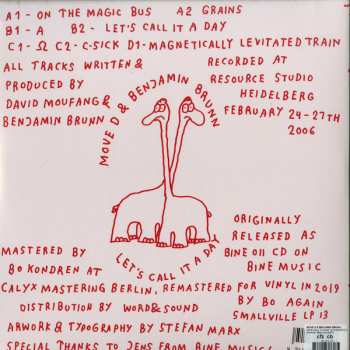 A1 - ON THE MAGIC BUS A2 GRAINS
B1 - A B2 - LET'S CALL IT A DAY
C1 - Ω C2 - C-SICK D1 - MAGNETICALLY LEVITATED TRAIN
ALL TRACKS WRITTEN &
PRODUCED BY
DAVID MOUFANG &
BENJAMIN BRUNN
RECORDED AT
RESOURCE STUDIO
HEIDELBERG
FEBRUARY 24-27TH
2006
MOVE D & BENJAMIN BRUNN
LET'S CALL IT A DAY
ORIGINALLY
RELEASED AS
BINE 011 CD ON
BINE MUSIC
MASTERED BY
BO KONDREN AT
CALYX MASTERING BERLIN, REMASTERED FOR VINYL IN 2019
BY BO AGAIN
DISTRIBUTION BY WORD&SOUND
SMALLVILLE LP 13
ARWORK & TYPOGRAPHY BY STEFAN MARX
SPECIAL THANKS TO JENS FROM BINE MUSIC